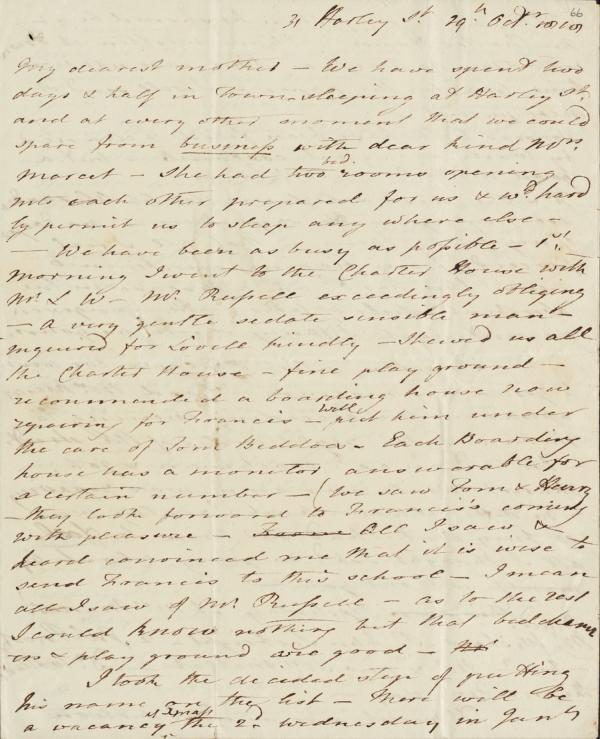 66
31 Harley St. 29th Octbr 1818
My dearest mother – We have spent two
days & half in Town – sleeping at Harley St.
and at every other moment that we could
spare from business with dear kind Mrs.
Marcet – She had two bed rooms opening
into each other prepared for us & wd. hard
ly permit us to sleep any where else –
– We have been as busy as possible – 1st.
morning I went to the Charter House with
Mr. & W – Mr. Russell exceedingly obliging
– a very gentle sedate sensible man –
inquired for Lovell kindly – Shewed us all
the Charter House – fine play ground –
recommended a boarding house now
repairing for Francis – will put him under
the care of Tom Beddoes – Each Boarding
house has a monitor answerable for
a certain number – (We saw Tom & Henry
– they look forward to Francis's coming
with pleasure – All I saw &
heard convinced me that it is wise to
send Francis to this school – I mean
all I saw of Mr. Russell – as to the rest
I could know nothing but that bedcham
ers & play ground are good –
I took the decided step of putting
his name on the list – There will be
a vacancy the 2d. Wednesday in Jany